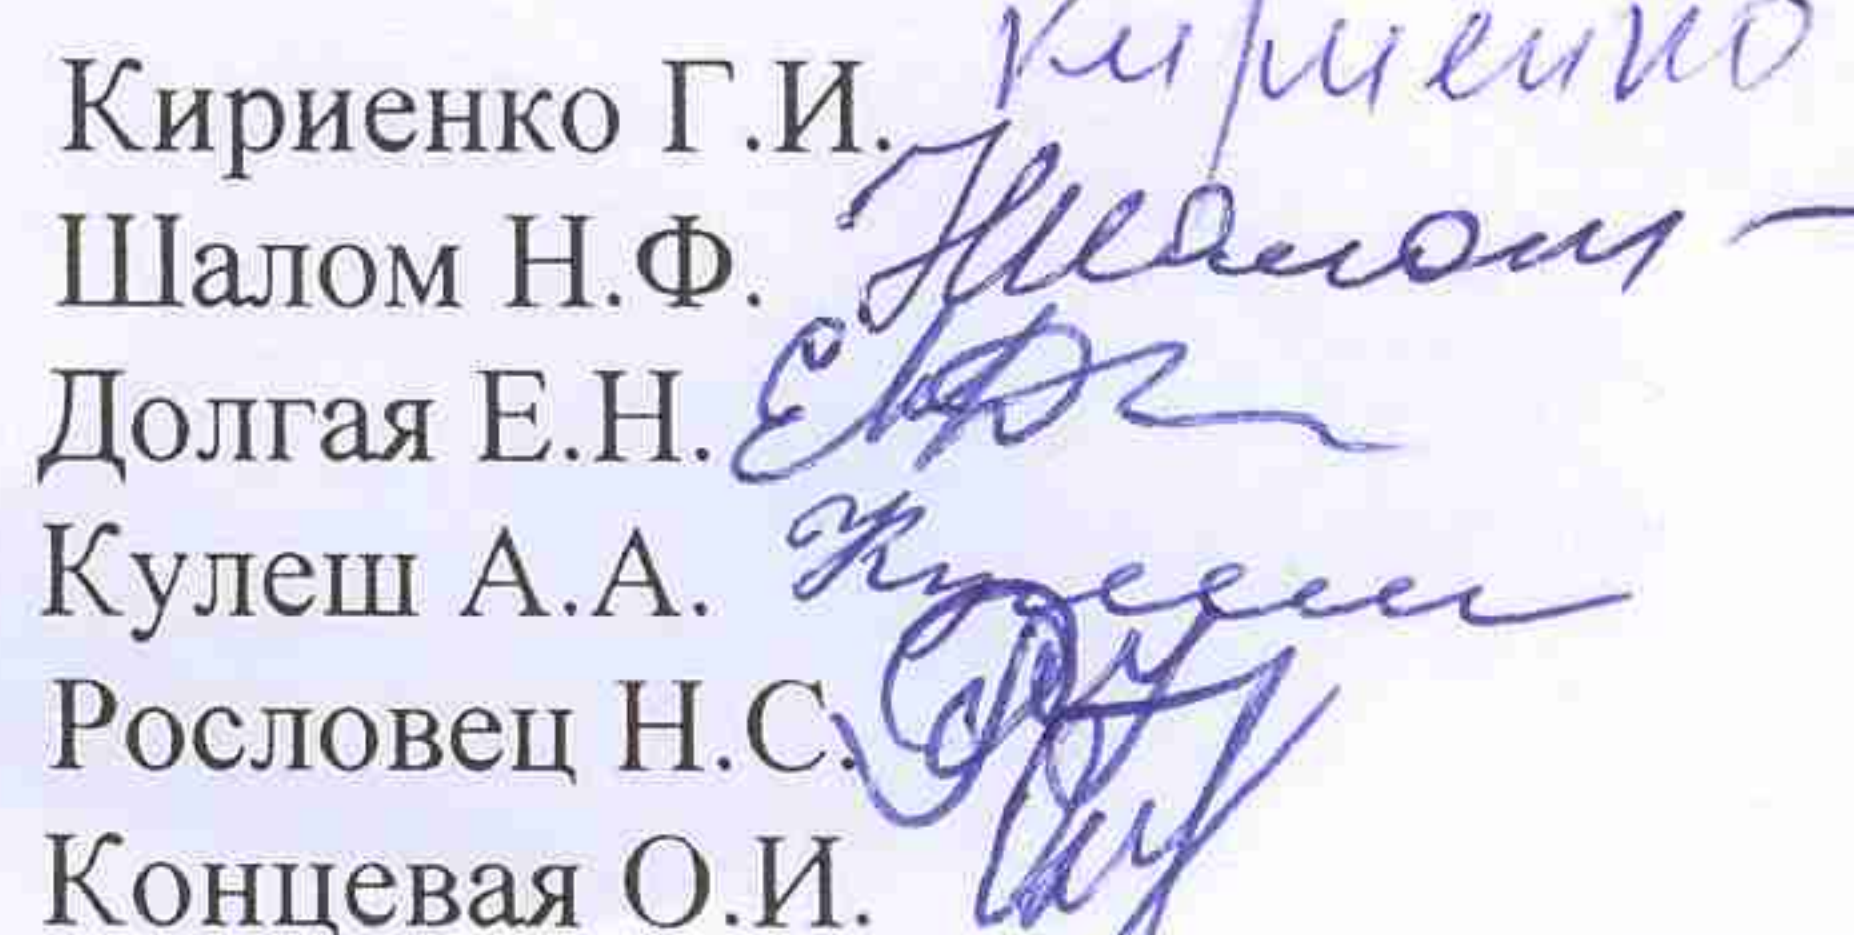 Кириенко Г.И. Кириенко
Шалом Н.Ф. Шалом
Долгая Е.Н.
Кулеш А.А. Кулеш
Рословец Н.С.
Концевая О.И.